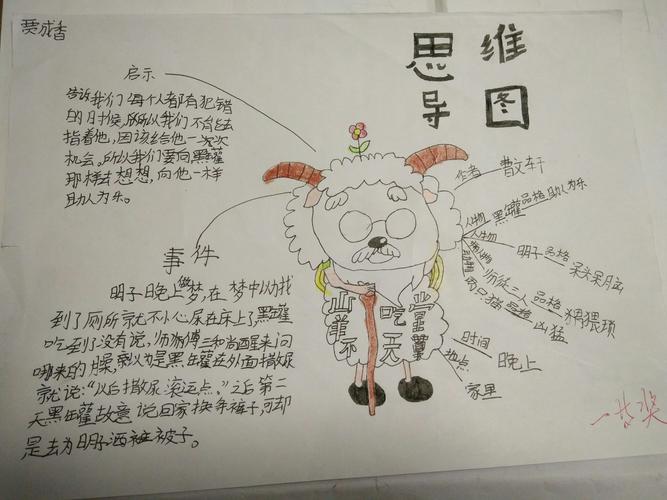 贾成香
思维
导图
启示
告诉我们每个人都有犯错
的时候,所以我们不能去
指着他,因该给他一次次
机会。所以我们要向黑罐
那样去想想,向他一样
助人为乐。
作者 曹文轩
人物 黑罐 品格 助人为乐
人物 明子 品格 呆头呆脑
师徒三人 品格
猫 品格 凶猛
时间 晚上
地点 家里
山羊不吃天堂草
事件
明子晚上做梦,在梦中以为找
到了厕所就不小心尿在床上了,黑罐
吃到了没有说,师傅三和尚醒来问
哪来的臊,就以为是黑罐在外面撒尿
就说:“以后撒尿滚远点。”之后第二
天黑罐故意说回家换条裤子,可却
是去为明子洒被子。
一等奖